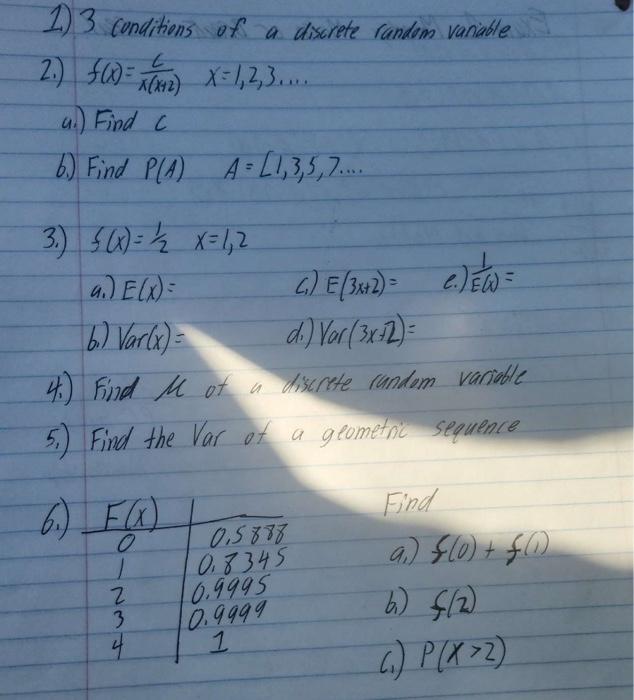 1.) 3 conditions of a discrete random variable
2.) f(x) = c/x(x+2) x=1,2,3....
a.) Find c
b.) Find P(A) A = [1,3,5,7....
3.) f(x) = 1/2 x=1,2
a.) E(x) = c.) E(3x+2) = e.) 1/E(x) =
b.) Var(x) = d.) Var(3x+2) =
4.) Find M of a discrete random variable
5.) Find the Var of a geometric sequence
6.) F(x) Find
0 0.5888
1 0.8345 a.) f(0) + f(1)
2 0.9995
3 0.9999 b.) f(2)
4 1
c.) P(X>2)